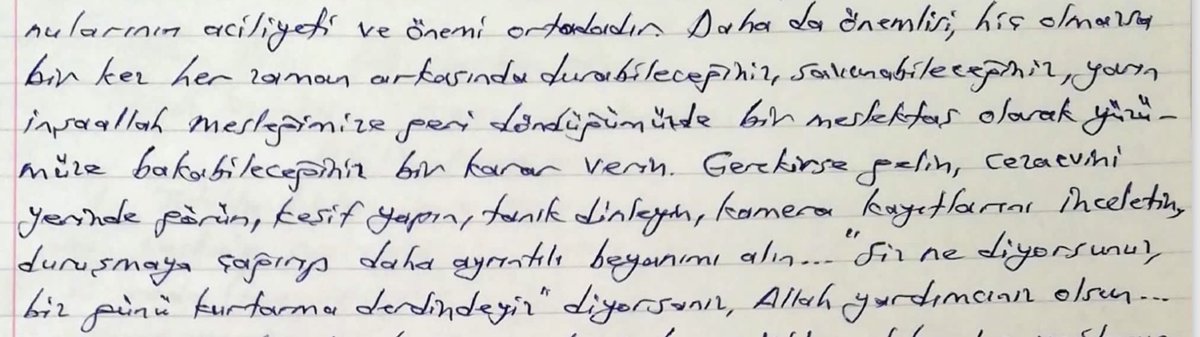 nularının aciliyeti ve önemi ortadadır. Daha da önemlisi, hiç olmazsa
bir kez her zaman arkasında durabileceğiniz, savunabileceğiniz, yarın
inşaallah mesleğimize geri döndüğümüzde bir meslektaş olarak yüzü-
müze bakabileceğiniz bir karar verin. Gerekirse gelin, cezaevini
yerinde görün, keşif yapın, tanık dinleyin, kamera kayıtlarını inceletin,
duruşmaya çağırıp daha ayrıntılı beyanımı alın... "Siz ne diyorsunuz,
biz günü kurtarma derdindeyiz" diyorsanız, Allah yardımcınız olsun...